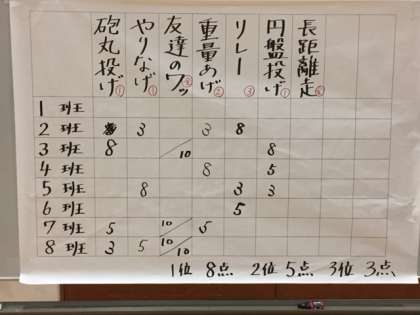 砲丸投げ①
やりなげ①
友達のワッ②
重量あげ②
リレー③
円盤投げ①
長距離走
1 班
2 班 3 3 8
3 班 8 /10 8
4 班 8 5
5 班 8 3 3
6 班 5
7 班 5 10/ 5
8 班 3 5 10/10
1位 8点 2位 5点 3位 3点